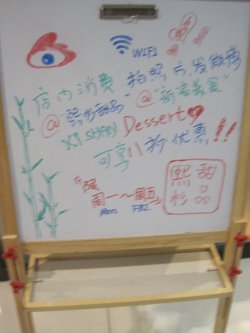 WIFI
店内消费 拍照片,发微博
@"熙杉甜品" @"新浪美食"
XI SHAN Dessert
可享八折优惠!!
"限
周一~周五"
Mon. FRI.
熙甜
杉品